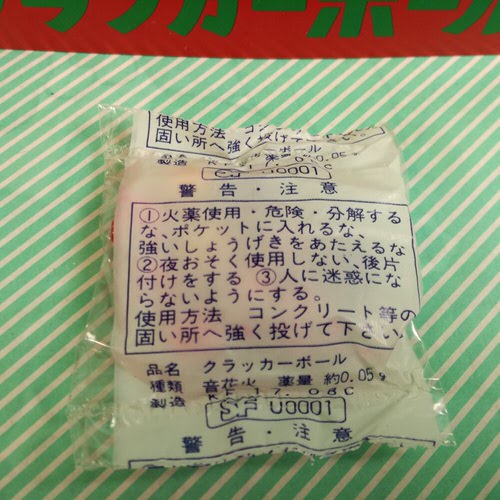 クラッカーボール
使用方法 コンクリート
固い所へ強く投げて
品名 クラッカーボール
薬量 約0.05g
製造
SF U0001
警告・注意
①火薬使用・危険・分解する
な、ポケットに入れるな、
強いしょうげきをあたえるな
②夜おそく使用しない、後片
付けをする ③人に迷惑にな
らないようにする。
使用方法 コンクリート等の
固い所へ強く投げて下さい
品名 クラッカーボール
種類 音花火 薬量 約0.05g
製造 KF 17.08C
SF U0001
警告・注意